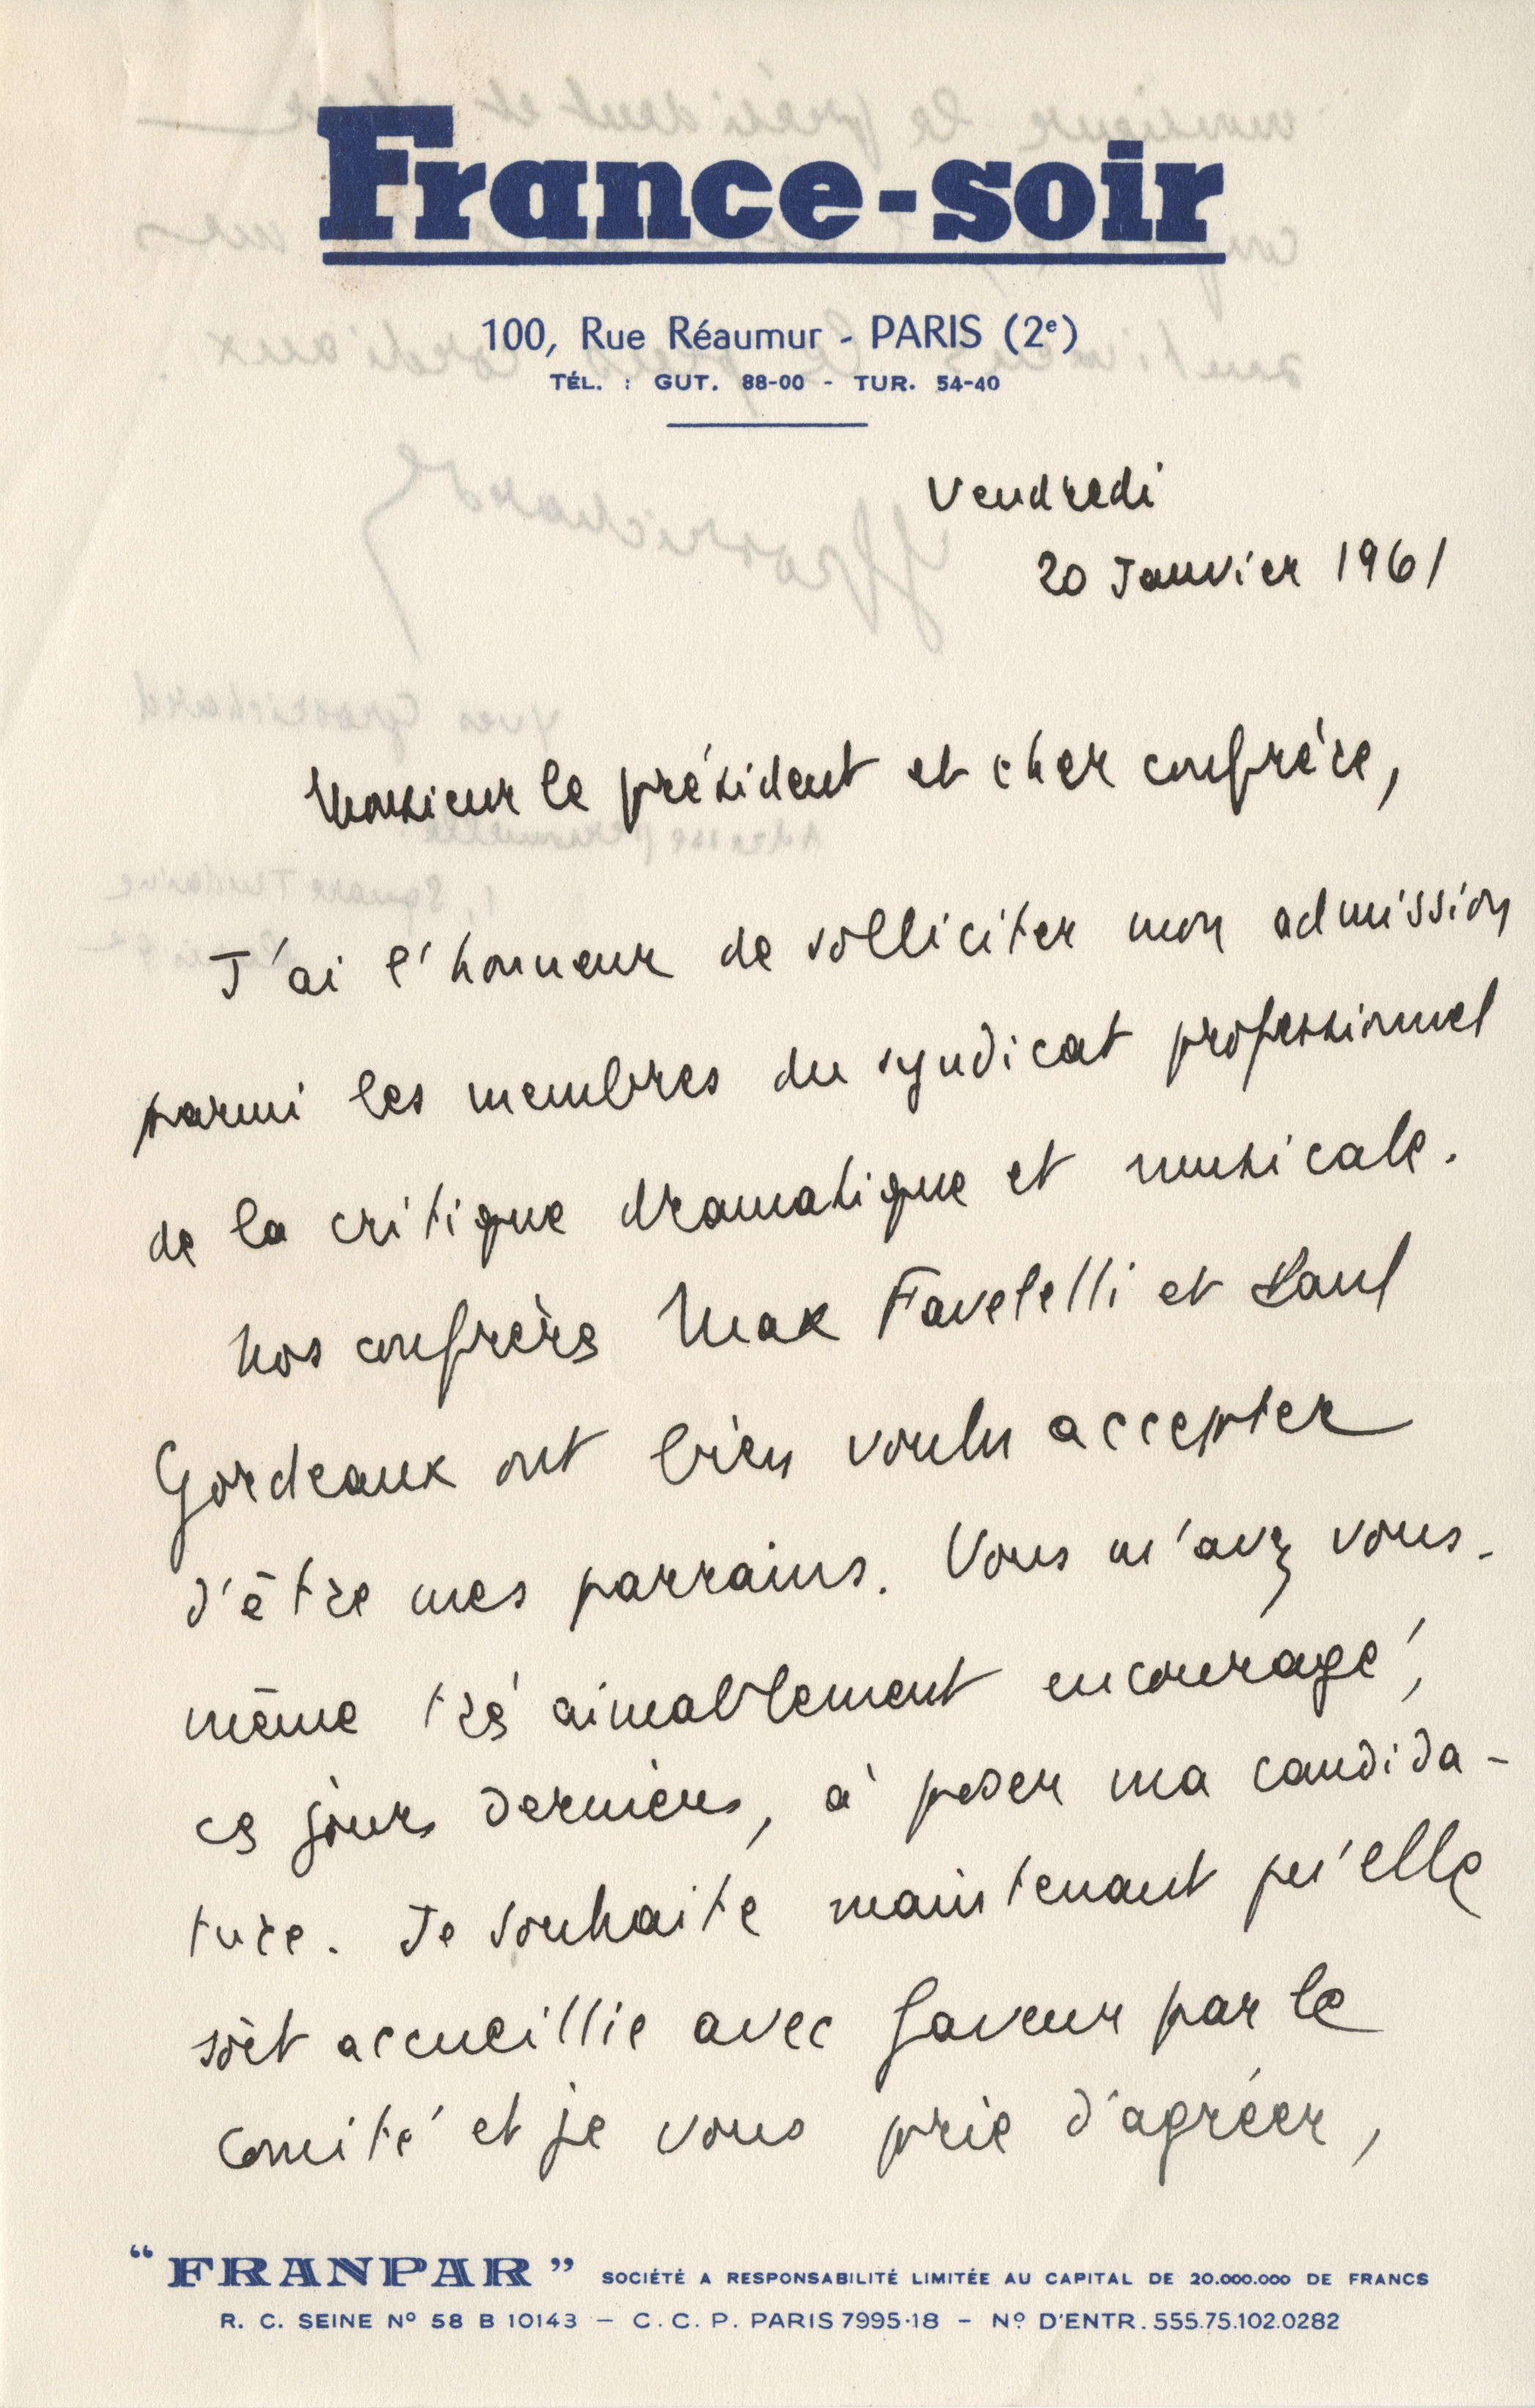 France-soir
100, Rue Réaumur - PARIS (2e)
TÉL. : GUT. 88-00 - TUR. 54-40
Vendredi
20 Janvier 1961
Monsieur le président et cher confrère,
J'ai l'honneur de solliciter mon admission
parmi les membres du syndicat professionnel
de la critique dramatique et musicale.
Nos confrères Max Favelelli et Paul
Gordeaux ont bien voulu accepter
d'être mes parrains. Vous m'avez vous-
même très aimablement encouragé,
ces jours derniers, à poser ma candida-
ture. Je souhaite maintenant qu'elle
soit accueillie avec faveur par le
comité et je vous prie d'agréer,
"FRANPAR" SOCIÉTÉ A RESPONSABILITÉ LIMITÉE AU CAPITAL DE 20.000.000 DE FRANCS
R. C. SEINE No 58 B 10143 — C. C. P. PARIS 7995-18 — No D'ENTR. 555.75.102.0282